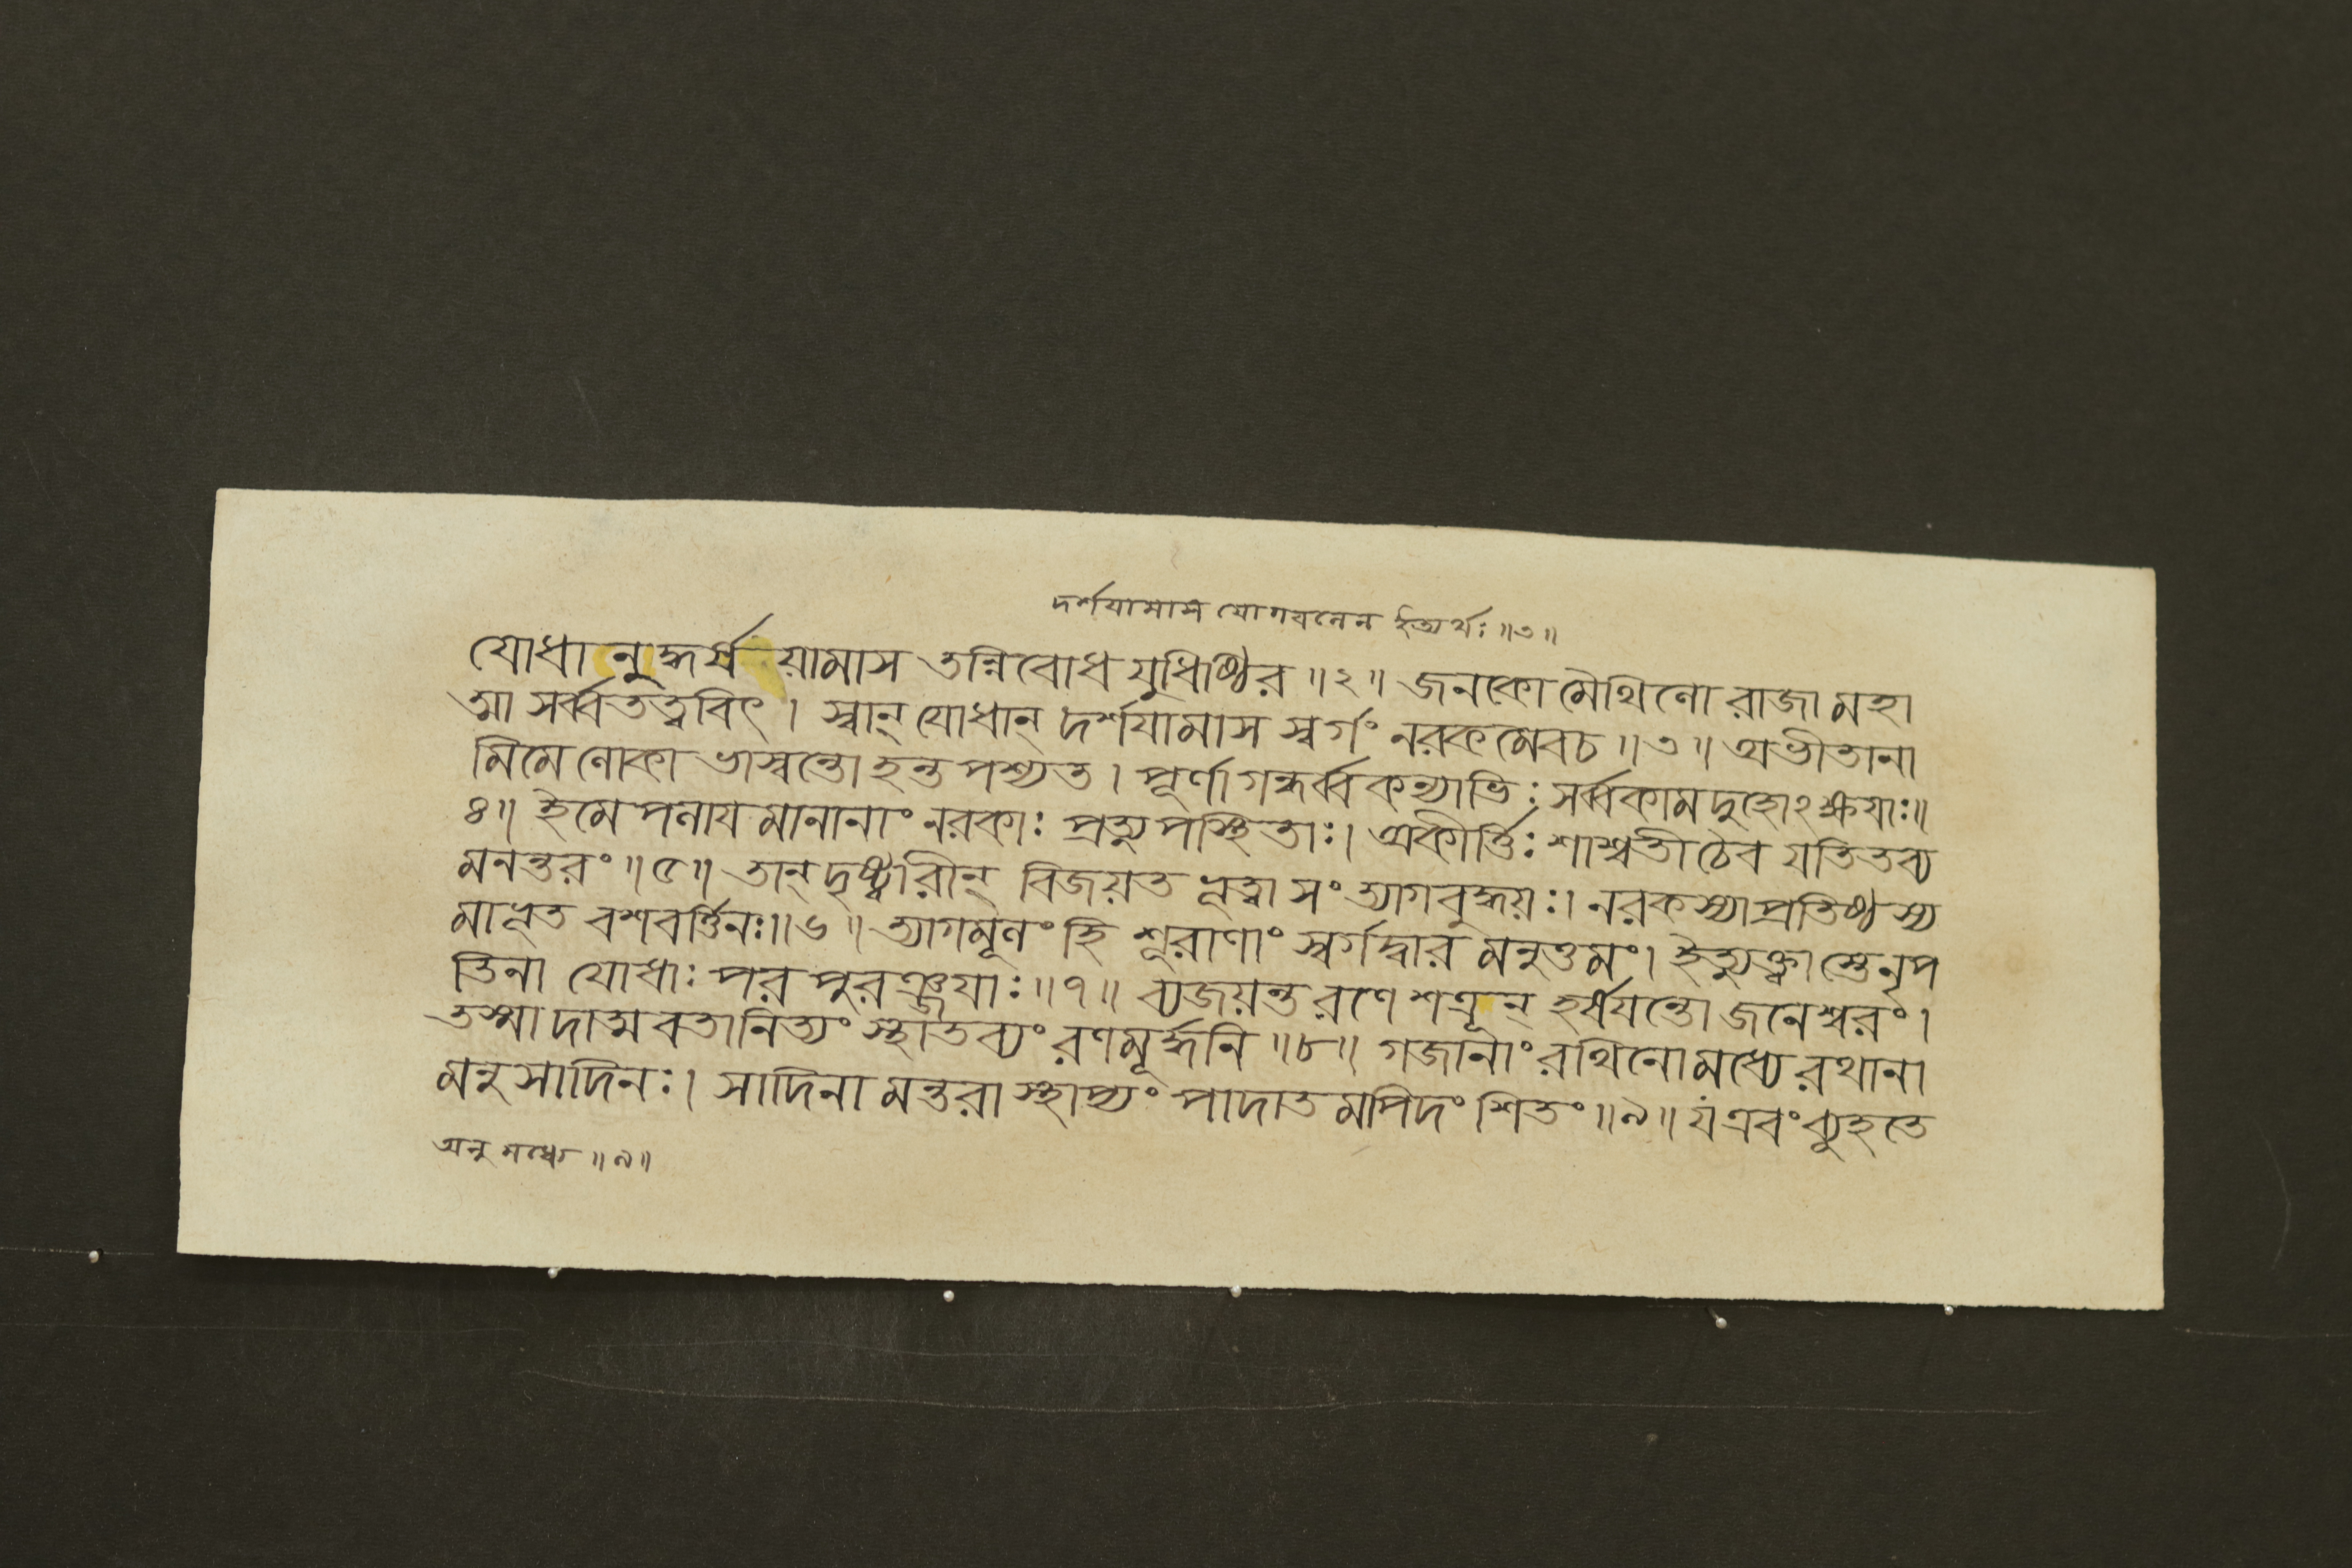 দর্শযামাস যোগবলেন ইত্যর্থঃ ॥৩॥
যোধানুদ্ধর্ষয়ামাস তন্নিবোধ যুধিষ্ঠির ॥২॥ জনকো মৈথিলো রাজা মহা
ত্মা সর্ব্বতত্ত্ববিৎ । স্বান্ যোধান্ দর্শযামাস স্বর্গং নরকমেবচ ॥৩॥ অভীতানা
মিমে লোকা ভাস্বন্তো হন্ত পশ্যত । পূর্ণা গন্ধর্ব্বকন্যাভিঃ সর্ব্বকামদুহোঽক্ষযাঃ॥
৪॥ ইমে পলাযমানানাং নরকাঃ প্রত্যুপস্থিতাঃ। অকীর্ত্তিঃ শাশ্বতী চৈব যতিতব্য
মনন্তরং ॥৫॥ তান্ দৃষ্ট্বারীন্ বিজয়ত ভূত্বা সংত্যাগবুদ্ধয়ঃ। নরকস্যাপ্রতিষ্ঠস্য
মাভূত বশবর্ত্তিনঃ॥৬॥ ত্যাগমূলং হি শূরাণাং স্বর্গদ্বারমনুত্তমং। ইত্যুক্ত্বাস্তে নৃপ
তিনা যোধাঃ পরপুরঞ্জযাঃ ॥৭॥ ব্যজয়ন্ত রণে শত্রূন্ হর্ষযন্তো জনেশ্বরং।
তস্মাদাত্মবতা নিত্যং স্থাতব্যং রণমূর্দ্ধনি ॥৮॥ গজানাং রথিনো মধ্যে রথানা
মনুসাদিনঃ। সাদিনামন্তরা স্থাপ্যং পাদাতমপিদংশিতং ॥৯॥ য এবং ব্যূহতে
অনু মধ্যে ॥৯॥